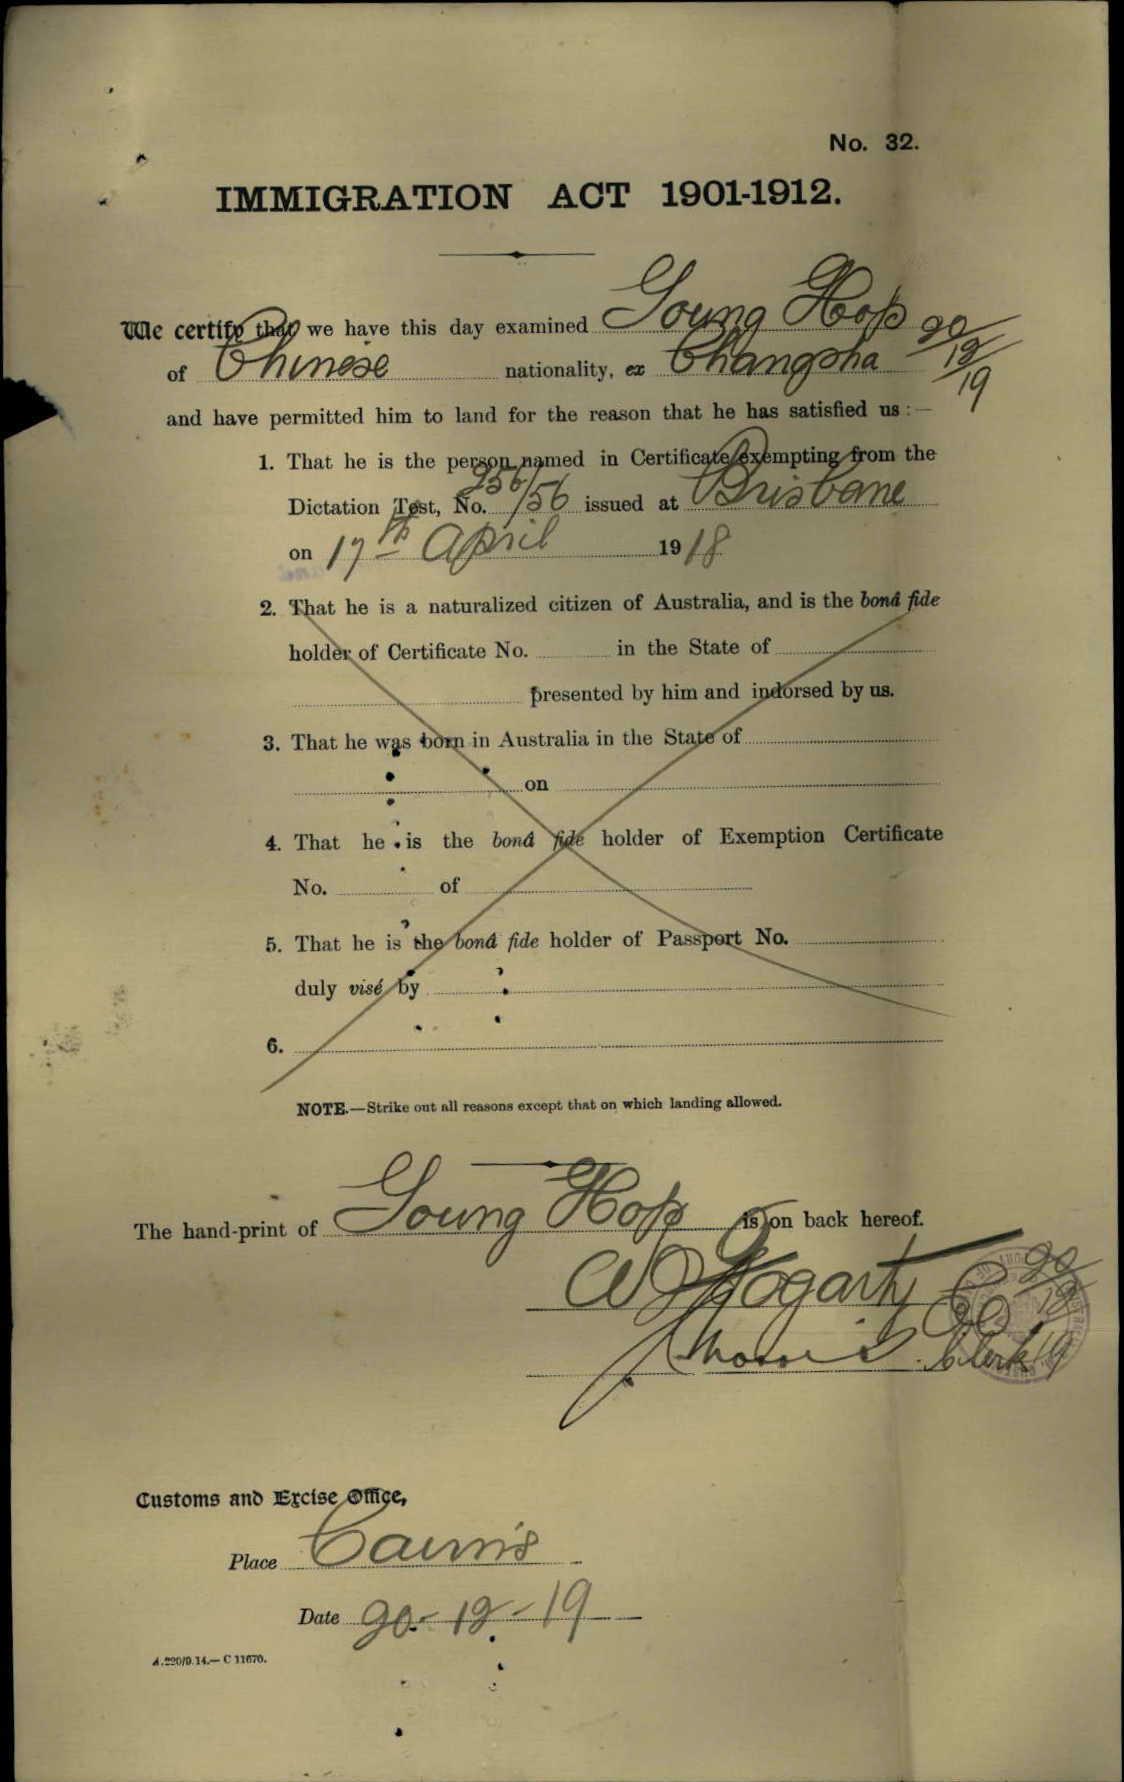 No. 32.
IMMIGRATION ACT 1901-1912.
We certify that we have this day examined Young Hop 20/12/19
of Chinese nationality, ex Changsha
and have permitted him to land for the reason that he has satisfied us :—
1. That he is the person named in Certificate exempting from the
Dictation Test, No. 256/56 issued at Brisbane
on 17th April 1918
2. That he is a naturalized citizen of Australia, and is the bonâ fide
holder of Certificate No. in the State of
presented by him and indorsed by us.
3. That he was born in Australia in the State of
on
4. That he is the bonâ fide holder of Exemption Certificate
No. of
5. That he is the bonâ fide holder of Passport No.
duly visé by
6.
NOTE.—Strike out all reasons except that on which landing allowed.
The hand-print of Young Hop is on back hereof.
Fogarty 20/12
Clerk
Customs and Excise Office,
Place Cairns
Date 20-12-19
A.220/9.14.— C 11670.